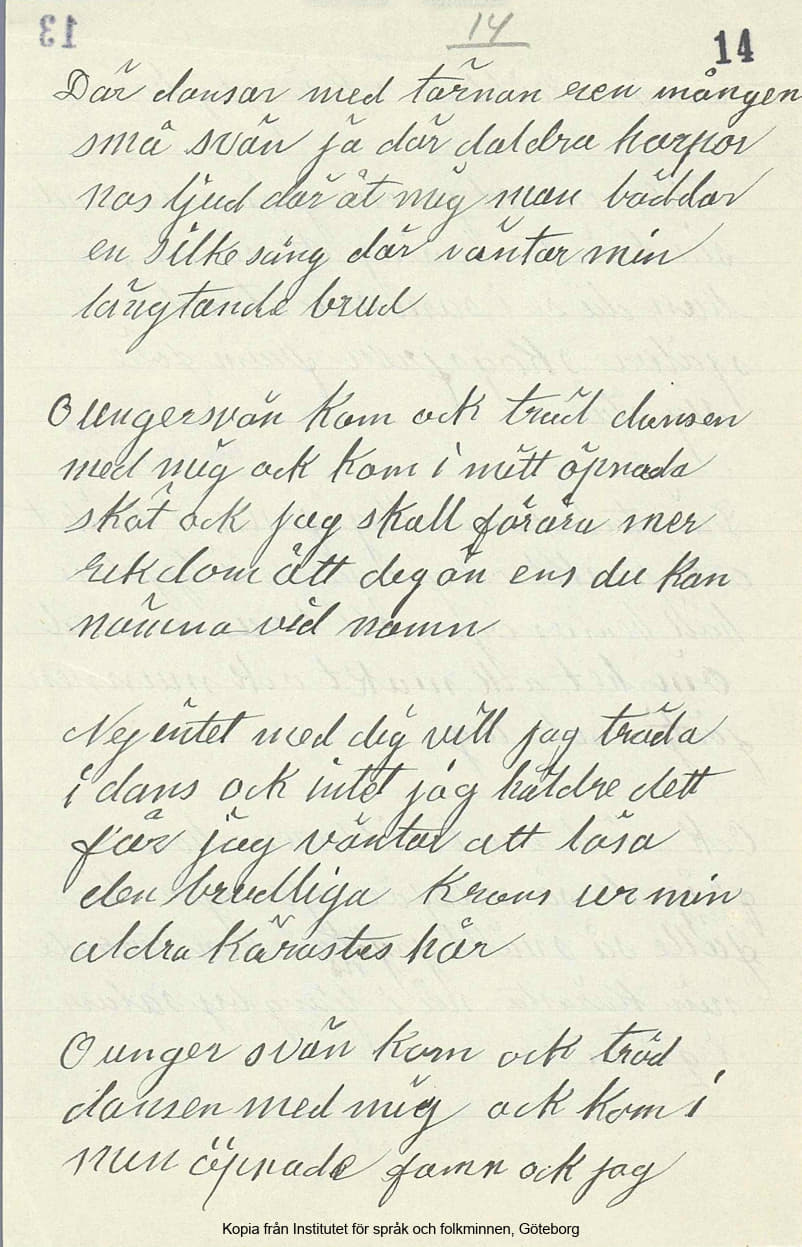 13
14
14
Där dansar med tärnan een mången
små svän ja där daldra harpor
nas ljud där åt mig man bäddar
en silke säng där väntar min
längtande brud
O ungersvän kom ock träd dansen
med mig ock kom i mitt öpnada
sköt ock jag skall förära mer
rikdom ått dig än ens du kan
nämna vid namn
Nej intet med dig vill jag träda
i dans ock intet jag häldre dett
får jag väntar att låsa
den brudliga krans ur min
aldra kärastes hår
O unger svän kom ock träd
dansen med mig ock kom i
min öpnade famn ock jag
Kopia från Institutet för språk och folkminnen, Göteborg